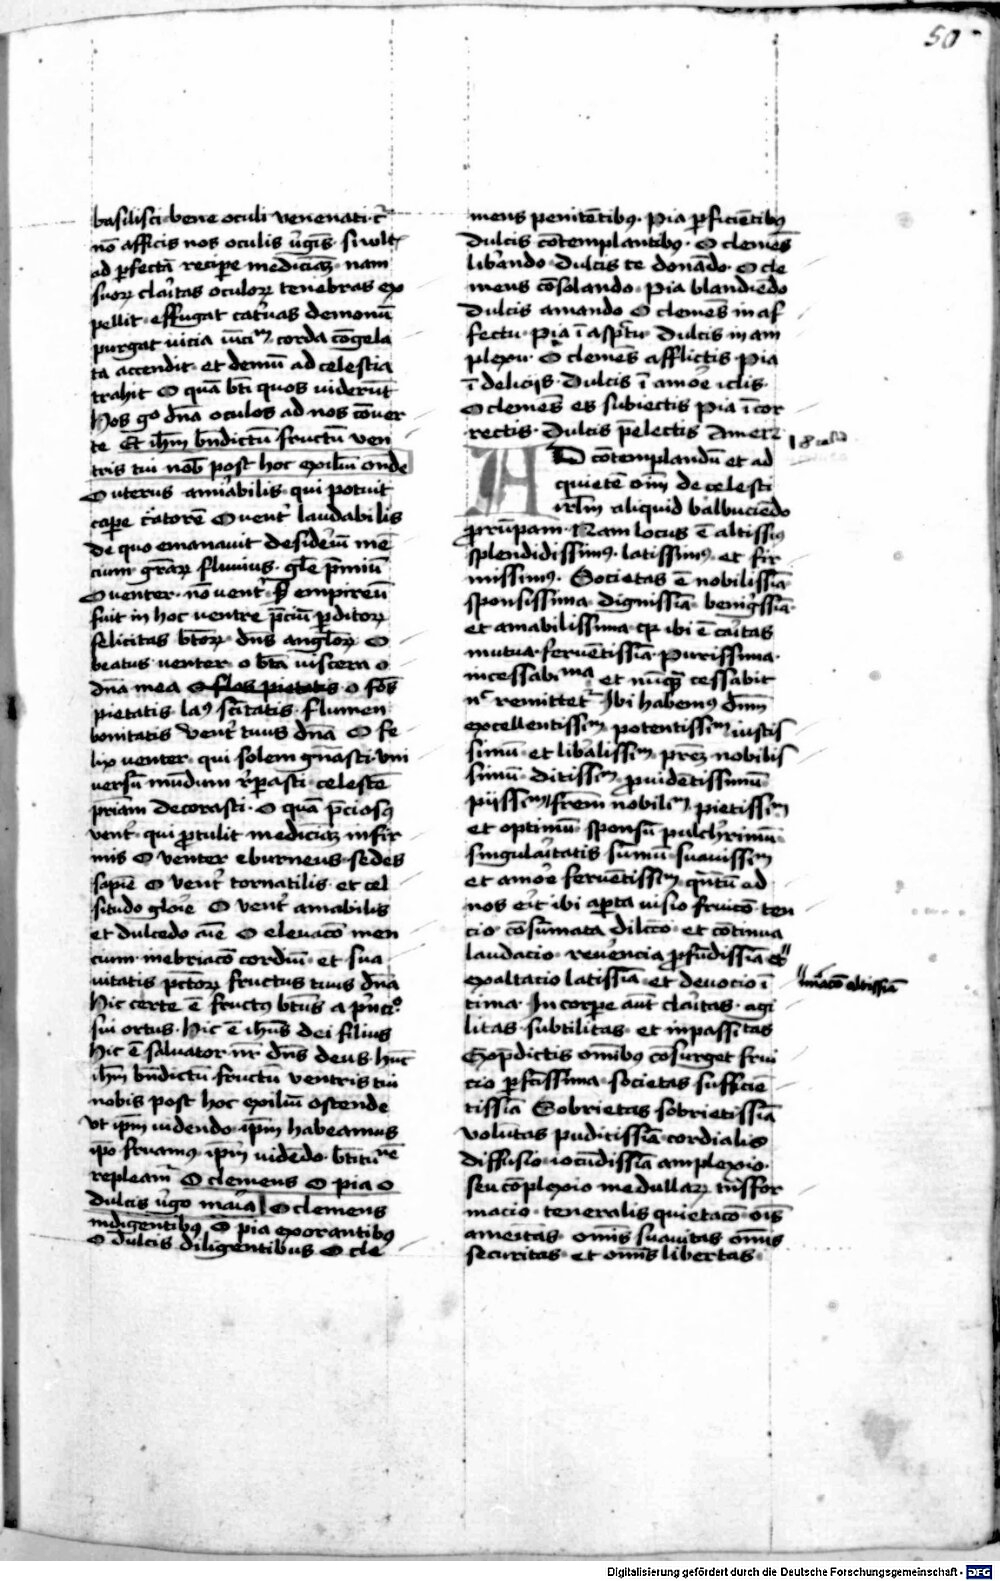 50
basilisci bene oculi venenati ·
nō afficis nos oculis v̄gis si vult
ad ꝑfectā recipe medicīaꝫ nam
suoꝝ clai̾tas oculoꝝ tenebras ex
pellit effugat cati̾vas demonū
purgat vicia corda cōgela
ta accendit et demū ad celestia
trahit O quā bt̄i quos viderūt
hos g° dn̄a oculos ad nos cōver
te Et ih̄m bn̄dictū fructū ven
tris tui nob̄ post hoc exiliū on̄de
O uterus amabilis qui potuit
caꝑe c̾atorē O vent̾ laudabilis
de quo emanavit deside̾iū mē
cium gr̄aꝝ fluvius gl̄e p̄miū
O venter nō vent̾ s empireū
fuit in hoc ventre p̄ciū ꝑditoꝝ
felicitas bt̄oꝝ dn̄s angl̄oꝝ O
beatus venter o bt̄a viscera o
dn̄a mea O flos pietatis o fōs
pietatis la⁹ sc̄itatis flumen
bonitatis vent̾ tuus dn̄a O fe
lix venter qui solem g̾nasti vni
versū mūdum r̾ꝑasti celestē
pr̄iam decorasti O quā p̄ciosꝰ
vent̾ qui ꝓtulit medicīaꝫ infir
mis O venter eburneus sedes
sapīe O vent̾ tornatilis et cel
situdo glōie O vent̾ amabilis
et dulcedo O elevacō men
cium inebriacō cordiū et sua
vitatis pc̄toꝝ fructus tuus dn̄a
hic certe ē fructꝰ bt̄us a p̾nci°
sui ortus hic ē ih̄us dei filius
hic ē salvator nr̄ dn̄s deus hūc
ih̄m bn̄dictū fructū ventris tui
nobis post hoc exiliū ostende
vt ip̄m videndo ip̄m habeamus
ip̄o fruamur ip̄m vidēdo
repleam̾ O clemens O pia o
dulcis v̾go mai̾a O clemens
indigentibꝰ O pia exorantibꝰ
O dulcis diligentibus O cle
mens penitētibꝰ Pia ꝓficiētibꝰ
dulcis cōtemplantibꝰ O clemēs
lib̾ando dulcis te donādo O cle
mens cōsolando Pia blandiēdo
dulcis amando O clemēs in af
fectu Pia ī aspc̄tu dulcis in am
plexu O clemēs afflictis Pia
ī delicijs dulcis ī amōe
O clemēs es subiectis Pia ī cor
rectis dulcis p̄electis Amen
18
AD cōtemplandū et ad
quietē oīm de celesti
irl̄m aliquid balbuciēdo
ꝓrūpam Nam locus ē altissiꝰ
splendidissimꝰ latissimꝰ et fir
missimꝰ Societas ē nobilissīa
sponsissima dignissīa benig̾ssīa
et amabilissima qꝫ ibi ē cai̾tas
mutua fervētissīa purissima
incessabima et nūq̄ cessabit
n͛ remittet̾ Ibi habemꝰ dn̄m
excellentissim potentissim iustis
simū et lib̾alissim prēꝫ nobilis
simū ditissim ꝓvidētissimū
pijssim frēm nobilim pietissim
et optimū sponsū pulch̾rimū
singulai̾tatis sūmū suavissim
et amōe fervētissim q̾ntū ad
nos ei̾t ibi aꝑta visio fruicō ten
cio cōsūmata dilc̄cō et cōtinua
laudacio reve̾ncia ꝓfūdissīa et
exaltacio latissīa et devocio ī
tima In corꝑe aūt clai̾tas agi
litas subtilitas et inpassi̾tas
Ex p̄dictis om̄ibꝰ cōsurget frui
cio ꝑfc̄issima societas sufficiē
tissīa Sobrietas sobrietissīa
volūtas pudicissīa cordialis
diffusio iocūdissīa amplexio
seu cōplexio medullaꝝ tn̄sfor
macio teneralis quietacō oīs
amēitas om̄is suavitas om̄is
securitas et om̄is libertas
altissīa
Digitalisierung gefördert durch die Deutsche Forschungsgemeinschaft - DFG